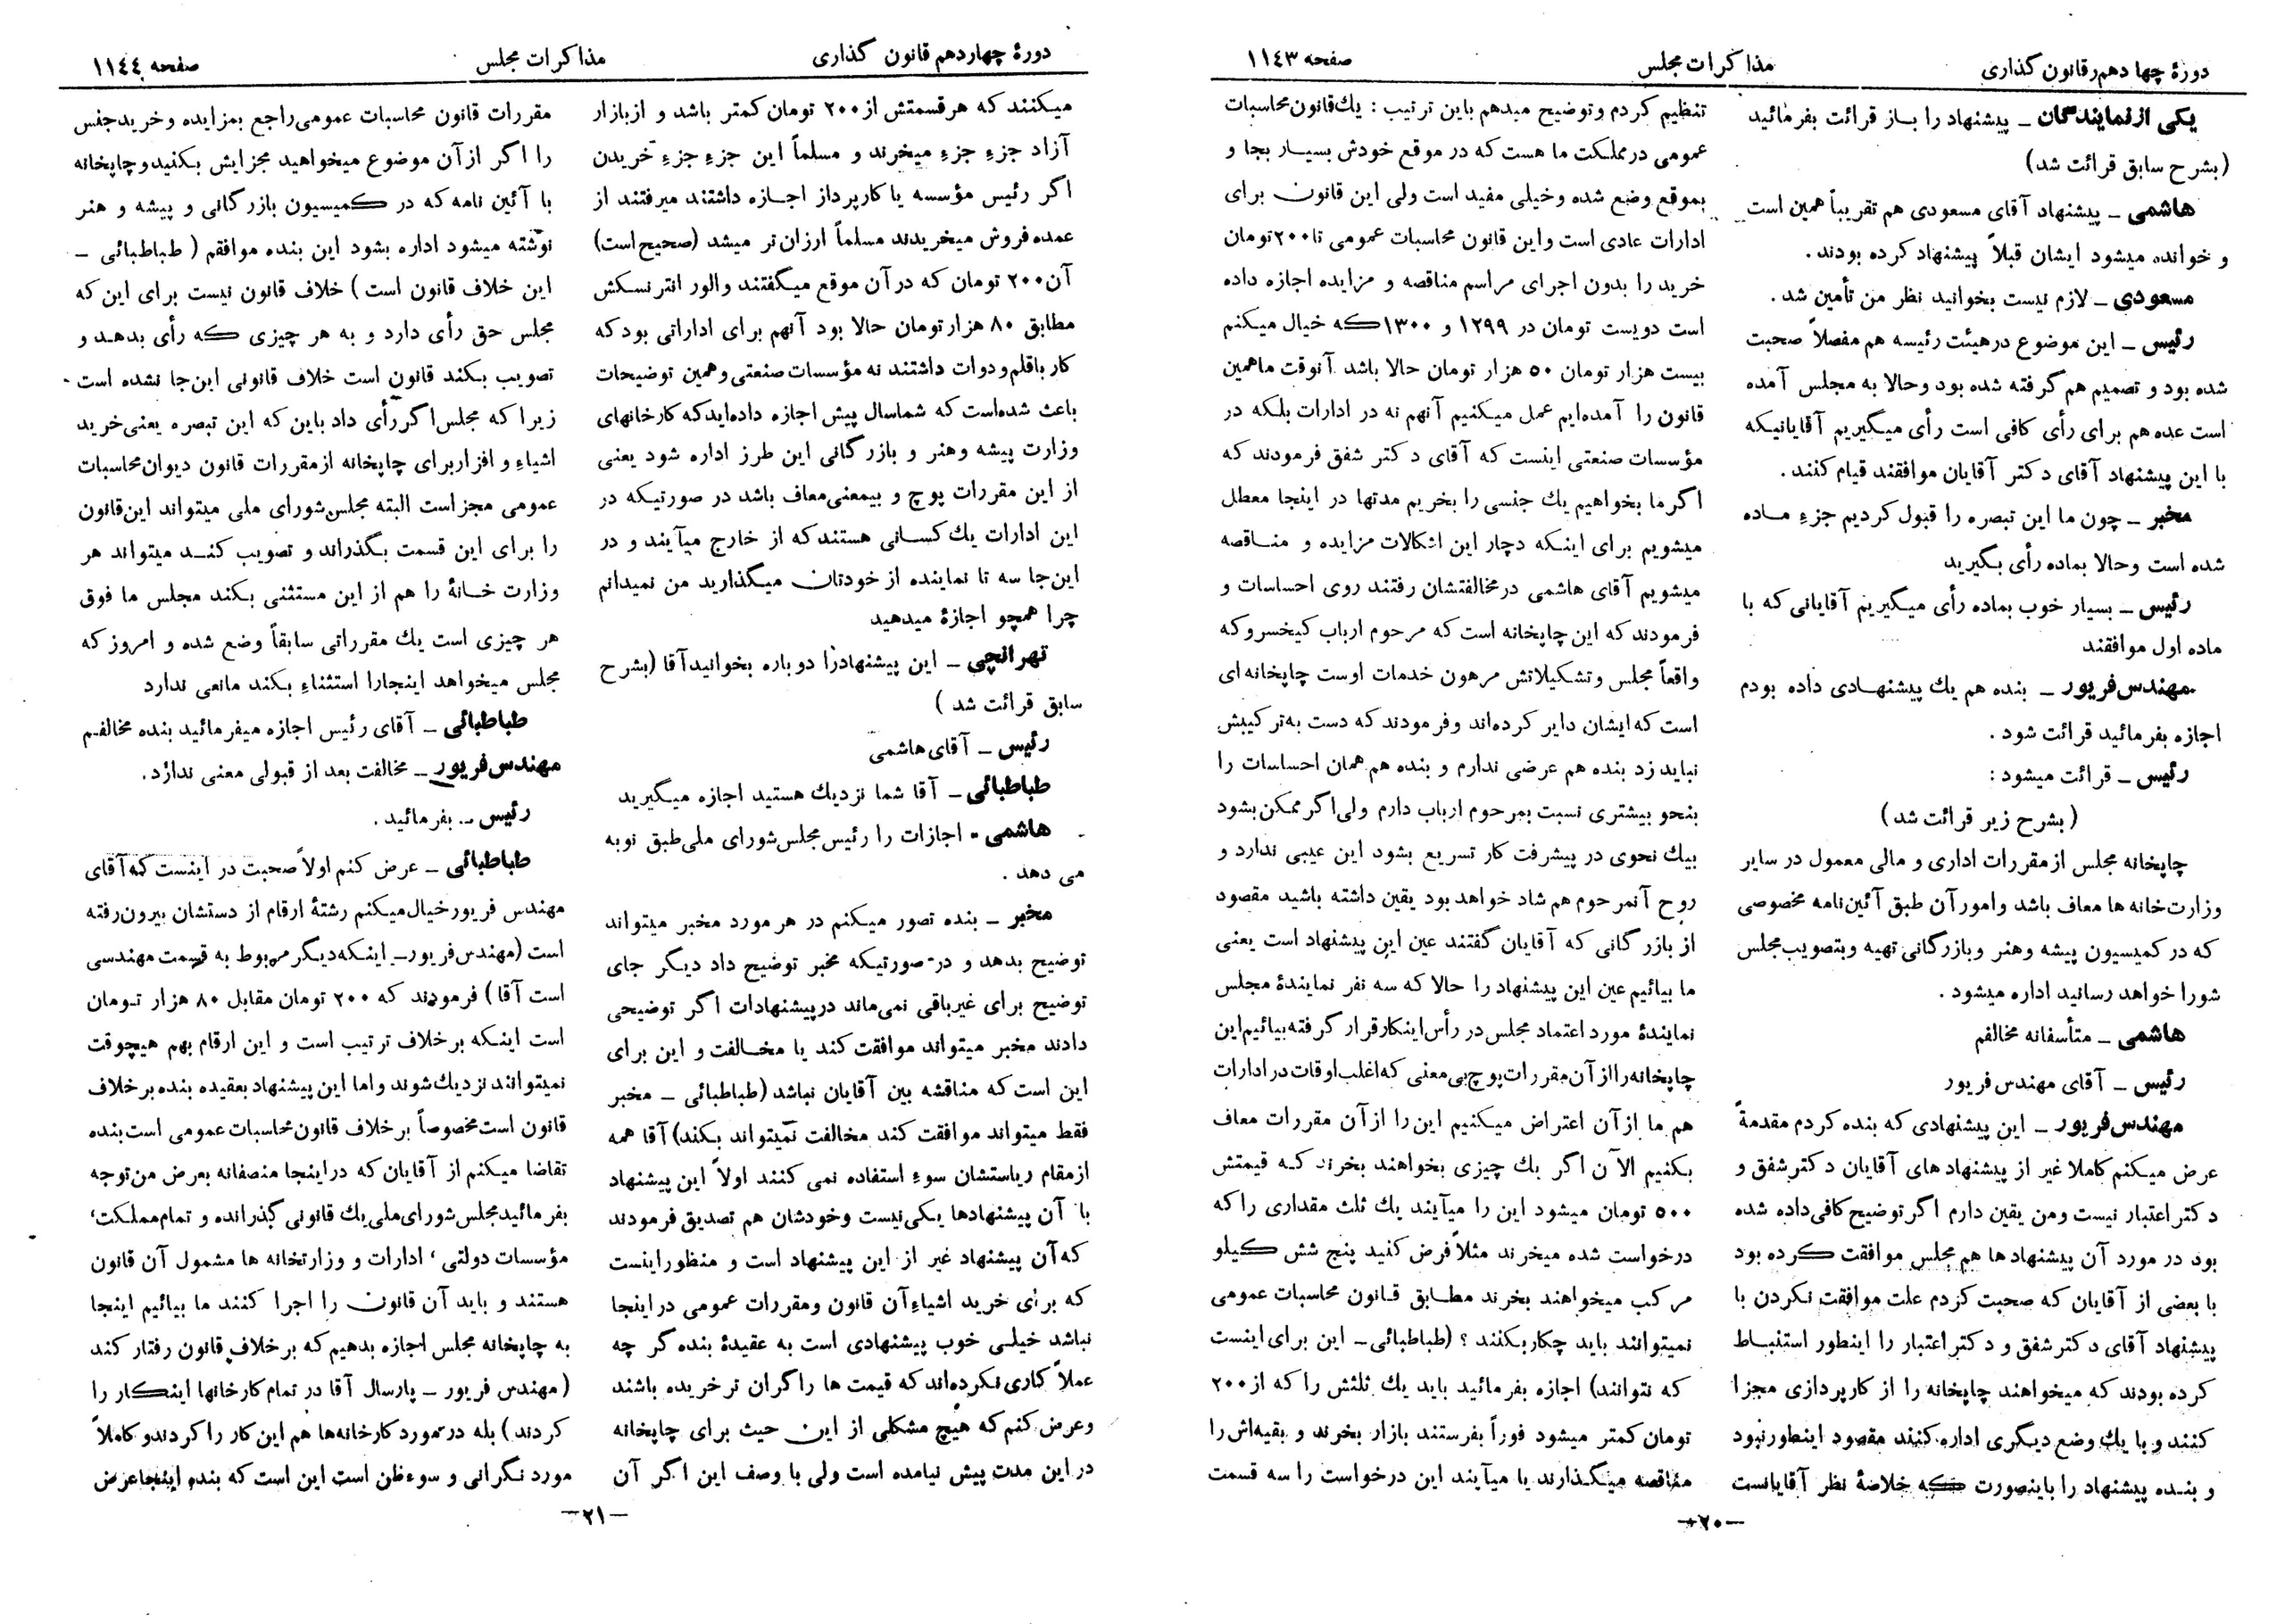 دورهٔ چهاردهم قانون گذاری
مذاکرات مجلس
صفحه ۱۱٤۳
یکی از نمایندگان ــ پیشنهاد را باز قرائت بفرمائید
(بشرح سابق قرائت شد)
هاشمی ــ پیشنهاد آقای مسعودی هم تقریباً همین است
و خوانده میشود ایشان قبلاً پیشنهاد کرده بودند .
مسعودی ــ لازم نیست بخوانید نظر من تأمین شد .
رئیس ــ این موضوع درهیئت رئیسه هم مفصلاً صحبت
شده بود و تصمیم هم گرفته شده بود وحالا به مجلس آمده
است عده هم برای رأی کافی است رأی میگیریم آقایانیکه
با این پیشنهاد آقای دکتر آقایان موافقند قیام کنند .
مخبر ــ چون ما این تبصره را قبول کردیم جزءِ ماده
شده است وحالا بماده رأی بگیرید
رئیس ــ بسیار خوب بماده رأی میگیریم آقایانی که با
ماده اول موافقند
مهندس فریور ــ بنده هم یك پیشنهادی داده بودم
اجازه بفرمائید قرائت شود .
رئیس ــ قرائت میشود :
(بشرح زیر قرائت شد)
چاپخانه مجلس از مقررات اداری و مالی معمول در سایر
وزارت خانه ها معاف باشد وامور آن طبق آئین نامه مخصوصی
که در کمیسیون پیشه وهنر وبازرگانی تهیه وبتصویب مجلس
شورا خواهد رسانید اداره میشود .
هاشمی ــ متأسفانه مخالفم
رئیس ــ آقای مهندس فریور
مهندس فریور ــ این پیشنهادی که بنده کردم مقدمةً
عرض میکنم کاملا غیر از پیشنهاد های آقایان دکتر شفق و
دکتر اعتبار نیست ومن یقین دارم اگر توضیح کافی داده شده
بود در مورد آن پیشنهاد ها هم مجلس موافقت کرده بود
با بعضی از آقایان که صحبت کردم علت موافقت نکردن با
پیشنهاد آقای دکتر شفق و دکتر اعتبار را اینطور استنباط
کرده بودند که میخواهند چاپخانه را از کارپردازی مجزا
کنند و با یك وضع دیگری اداره کنند مقصود اینطور نبود
و بنده پیشنهاد را باینصورت که خلاصهٔ نظر آقایانست
تنظیم کردم و توضیح میدهم باین ترتیب : یك قانون محاسبات
عمومی در مملکت ما هست که در موقع خودش بسیار بجا و
بموقع وضع شده وخیلی مفید است ولی این قانون برای
ادارات عادی است واین قانون محاسبات عمومی تا ۲۰۰ تومان
خرید را بدون اجرای مراسم مناقصه و مزایده اجازه داده
است دویست تومان در ۱۲۹۹ و ۱۳۰۰ که خیال میکنم
بیست هزار تومان ۵۰ هزار تومان حالا باشد آنوقت ما همین
قانون را آمده‌ایم عمل میکنیم آنهم نه در ادارات بلکه در
مؤسسات صنعتی اینست که آقای دکتر شفق فرمودند که
اگر ما بخواهیم یك جنسی را بخریم مدتها در اینجا معطل
میشویم برای اینکه دچار این اشکالات مزایده و مناقصه
میشویم آقای هاشمی در مخالفتشان رفتند روی احساسات و
فرمودند که این چاپخانه است که مرحوم ارباب کیخسرو که
واقعاً مجلس وتشکیلاتش مرهون خدمات اوست چاپخانه ای
است که ایشان دایر کرده‌اند وفرمودند که دست به ترکیبش
نباید زد بنده هم عرضی ندارم و بنده هم همان احساسات را
بنحو بیشتری نسبت بمرحوم ارباب دارم ولی اگر ممکن بشود
بیك نحوی در پیشرفت کار تسریع بشود این عیبی ندارد و
روح آنمرحوم هم شاد خواهد بود یقین داشته باشید مقصود
از بازرگانی که آقایان گفتند عین این پیشنهاد است یعنی
ما بیائیم عین این پیشنهاد را حالا که سه نفر نمایندهٔ مجلس
نمایندهٔ مورد اعتماد مجلس در رأس اینکار قرار گرفته بیائیم این
چاپخانه را از آن مقررات پوچ بی معنی که اغلب اوقات در ادارات
هم ما از آن اعتراض میکنیم این را از آن مقررات معاف
بکنیم الآن اگر یك چیزی بخواهند بخرند که قیمتش
۵۰۰ تومان میشود این را میآیند یك ثلث مقداری را که
درخواست شده میخرند مثلاً فرض کنید پنج شش کیلو
مرکب میخواهند بخرند مطابق قانون محاسبات عمومی
نمیتوانند باید چکار بکنند ؟ (طباطبائی ــ این برای اینست
که نتوانند) اجازه بفرمائید باید یك ثلثش را که از ۲۰۰
تومان کمتر میشود فوراً بفرستند بازار بخرند و بقیه‌اش را
مناقصه میگذارند یا میآیند این درخواست را سه قسمت
ــ ۲۰ ــ
دورهٔ چهاردهم قانون گذاری
مذاکرات مجلس
صفحه ۱۱٤٤
میکنند که هرقسمتش از ۲۰۰ تومان کمتر باشد و از بازار
آزاد جزءِ جزءِ میخرند و مسلماً این جزءِ جزءِ خریدن
اگر رئیس مؤسسه یا کارپرداز اجازه داشتند میرفتند از
عمده فروش میخریدند مسلماً ارزان تر میشد (صحیح است)
آن ۲۰۰ تومان که در آن موقع میگفتند والور انترنسکش
مطابق ۸۰ هزار تومان حالا بود آنهم برای اداراتی بود که
کار با قلم و دوات داشتند نه مؤسسات صنعتی وهمین توضیحات
باعث شده‌است که شما سال پیش اجازه داده‌اید که کارخانهای
وزارت پیشه وهنر و بازرگانی این طرز اداره شود یعنی
از این مقررات پوچ و بیمعنی معاف باشد در صورتیکه در
این ادارات یك کسانی هستند که از خارج میآیند و در
این جا سه تا نماینده از خودتان میگذارید من نمیدانم
چرا همچو اجازهٔ میدهید
تهرانچی ــ این پیشنهاد را دوباره بخوانید آقا (بشرح
سابق قرائت شد )
رئیس ــ آقای هاشمی
طباطبائی ــ آقا شما نزدیك هستید اجازه میگیرید
هاشمی ــ اجازات را رئیس مجلس شورای ملی طبق نوبه
می دهد .
مخبر ــ بنده تصور میکنم در هر مورد مخبر میتواند
توضیح بدهد و در صورتیکه مخبر توضیح داد دیگر جای
توضیح برای غیر باقی نمی‌ماند در پیشنهادات اگر توضیحی
دادند مخبر میتواند موافقت کند یا مخالفت و این برای
این است که مناقشه بین آقایان نباشد (طباطبائی ــ مخبر
فقط میتواند موافقت کند مخالفت نمیتواند بکند) آقا همه
از مقام ریاستشان سوءِ استفاده نمی کنند اولاً این پیشنهاد
با آن پیشنهادها یکی نیست وخودشان هم تصدیق فرمودند
که آن پیشنهاد غیر از این پیشنهاد است و منظور اینست
که برای خرید اشیاءِ آن قانون ومقررات عمومی در اینجا
نباشد خیلی خوب پیشنهادی است به عقیدهٔ بنده گر چه
عملاً کاری نکرده‌اند که قیمت ها را گران تر خریده باشند
وعرض کنم که هیچ مشکلی از این حیث برای چاپخانه
در این مدت پیش نیامده است ولی با وصف این اگر آن
مقررات قانون محاسبات عمومی راجع بمزایده وخرید جنس
را اگر از آن موضوع میخواهید مجزایش بکنید و چاپخانه
با آئین نامه که در کمیسیون بازرگانی و پیشه و هنر
نوشته میشود اداره بشود این بنده موافقم ( طباطبائی ــ
این خلاف قانون است ) خلاف قانون نیست برای این که
مجلس حق رأی دارد و به هر چیزی که رأی بدهد و
تصویب بکند قانون است خلاف قانونی این جا نشده است
زیرا که مجلس اگر رأی داد باین که این تبصره یعنی خرید
اشیاءِ و افزار برای چاپخانه از مقررات قانون دیوان محاسبات
عمومی مجز است البته مجلس شورای ملی میتواند این قانون
را برای این قسمت بگذراند و تصویب کند میتواند هر
وزارت خانهٔ را هم از این مستثنی بکند مجلس ما فوق
هر چیزی است یك مقرراتی سابقاً وضع شده و امروز که
مجلس میخواهد اینجارا استثناءِ بکند مانعی ندارد
طباطبائی ــ آقای رئیس اجازه میفرمائید بنده مخالفم
مهندس فریور ــ مخالفت بعد از قبولی معنی ندارد.
رئیس ــ بفرمائید .
طباطبائی ــ عرض کنم اولاً صحبت در اینست که آقای
مهندس فریور خیال میکنم رشتهٔ ارقام از دستشان بیرون رفته
است (مهندس فریور ــ اینکه دیگر مربوط به قسمت مهندسی
است آقا ) فرمودند که ۲۰۰ تومان مقابل ۸۰ هزار تومان
است اینکه برخلاف ترتیب است و این ارقام بهم هیچوقت
نمیتوانند نزدیك شوند واما این پیشنهاد بعقیده بنده برخلاف
قانون است مخصوصاً برخلاف قانون محاسبات عمومی است بنده
تقاضا میکنم از آقایان که در اینجا منصفانه بعرض من توجه
بفرمائید مجلس شورای ملی یك قانونی گذرانده و تمام مملکت،
مؤسسات دولتی ، ادارات و وزارتخانه ها مشمول آن قانون
هستند و باید آن قانون را اجرا کنند ما بیائیم اینجا
به چاپخانه مجلس اجازه بدهیم که برخلاف قانون رفتار کند
( مهندس فریور ــ پارسال آقا در تمام کارخانها اینکار را
کردند ) بله در مورد کارخانه‌ها هم این کار را کردند و کاملاً
مورد نگرانی و سوءِظن است این است که بنده اینجا عرض
ــ ۲۱ ــ